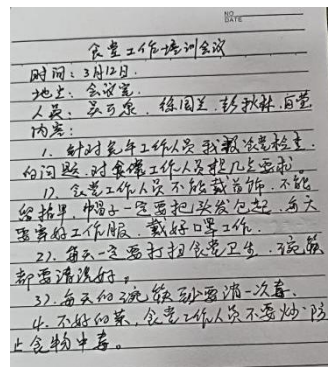 NO
DATE
食堂工作培训会议
时间：3月12日.
地点：会议室
人员：吴可泉、徐国兰、彭秋林、
内容：
1. 针对 工作人员 食堂检查
的问题，对食堂工作人员提几点要求。
1). 食堂工作人员不能戴首饰，不能
留指甲，帽子一定要把头发包起，每天
要穿好工作服，戴好口罩工作。
2). 每天一定要打扫食堂卫生，碗筷
都要清洗好。
3). 每天的碗筷 要消一次毒。
4. 不好的菜，食堂工作人员不要炒，防
止食物中毒。